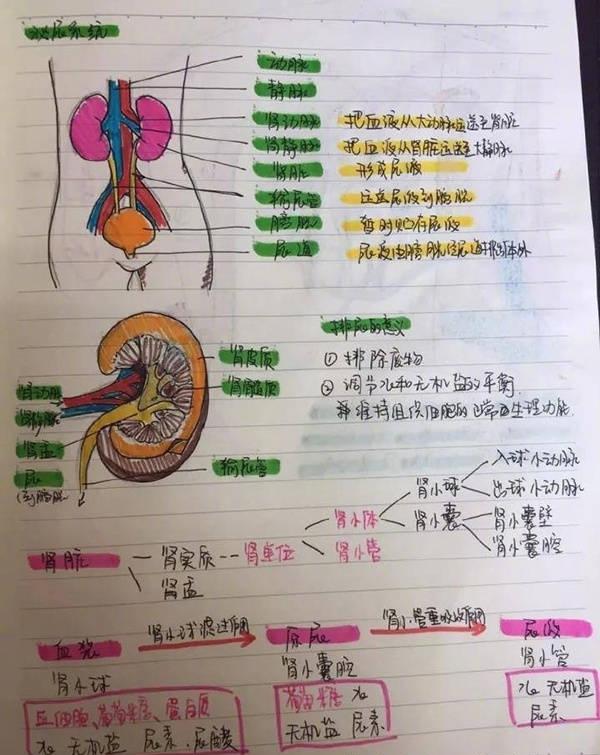 泌尿系统
动脉
静脉
肾动脉 把血液从大动脉运送至肾脏
肾静脉 把血液从肾脏运送至大静脉
肾脏 形成尿液
输尿管 运送尿液到膀胱
膀胱 暂时贮存尿液
尿道 尿液由膀胱经尿道排出体外
肾皮质
肾髓质
肾动脉
肾静脉
肾盂
尿
(到膀胱)
输尿管
排尿的意义
① 排除废物
② 调节水和无机盐的平衡
并维持组织细胞的正常生理功能
入球小动脉
肾小球
出球小动脉
肾小体
肾小囊
肾小囊壁
肾小囊腔
肾脏
肾实质
肾单位
肾小管
肾盂
血浆 肾小球滤过作用 原尿 肾小管重吸收作用 尿液
肾小球 肾小囊腔 肾小管
血细胞、葡萄糖、蛋白质 葡萄糖 水 水 无机盐
水 无机盐 尿素、尿酸 无机盐 尿素 尿素